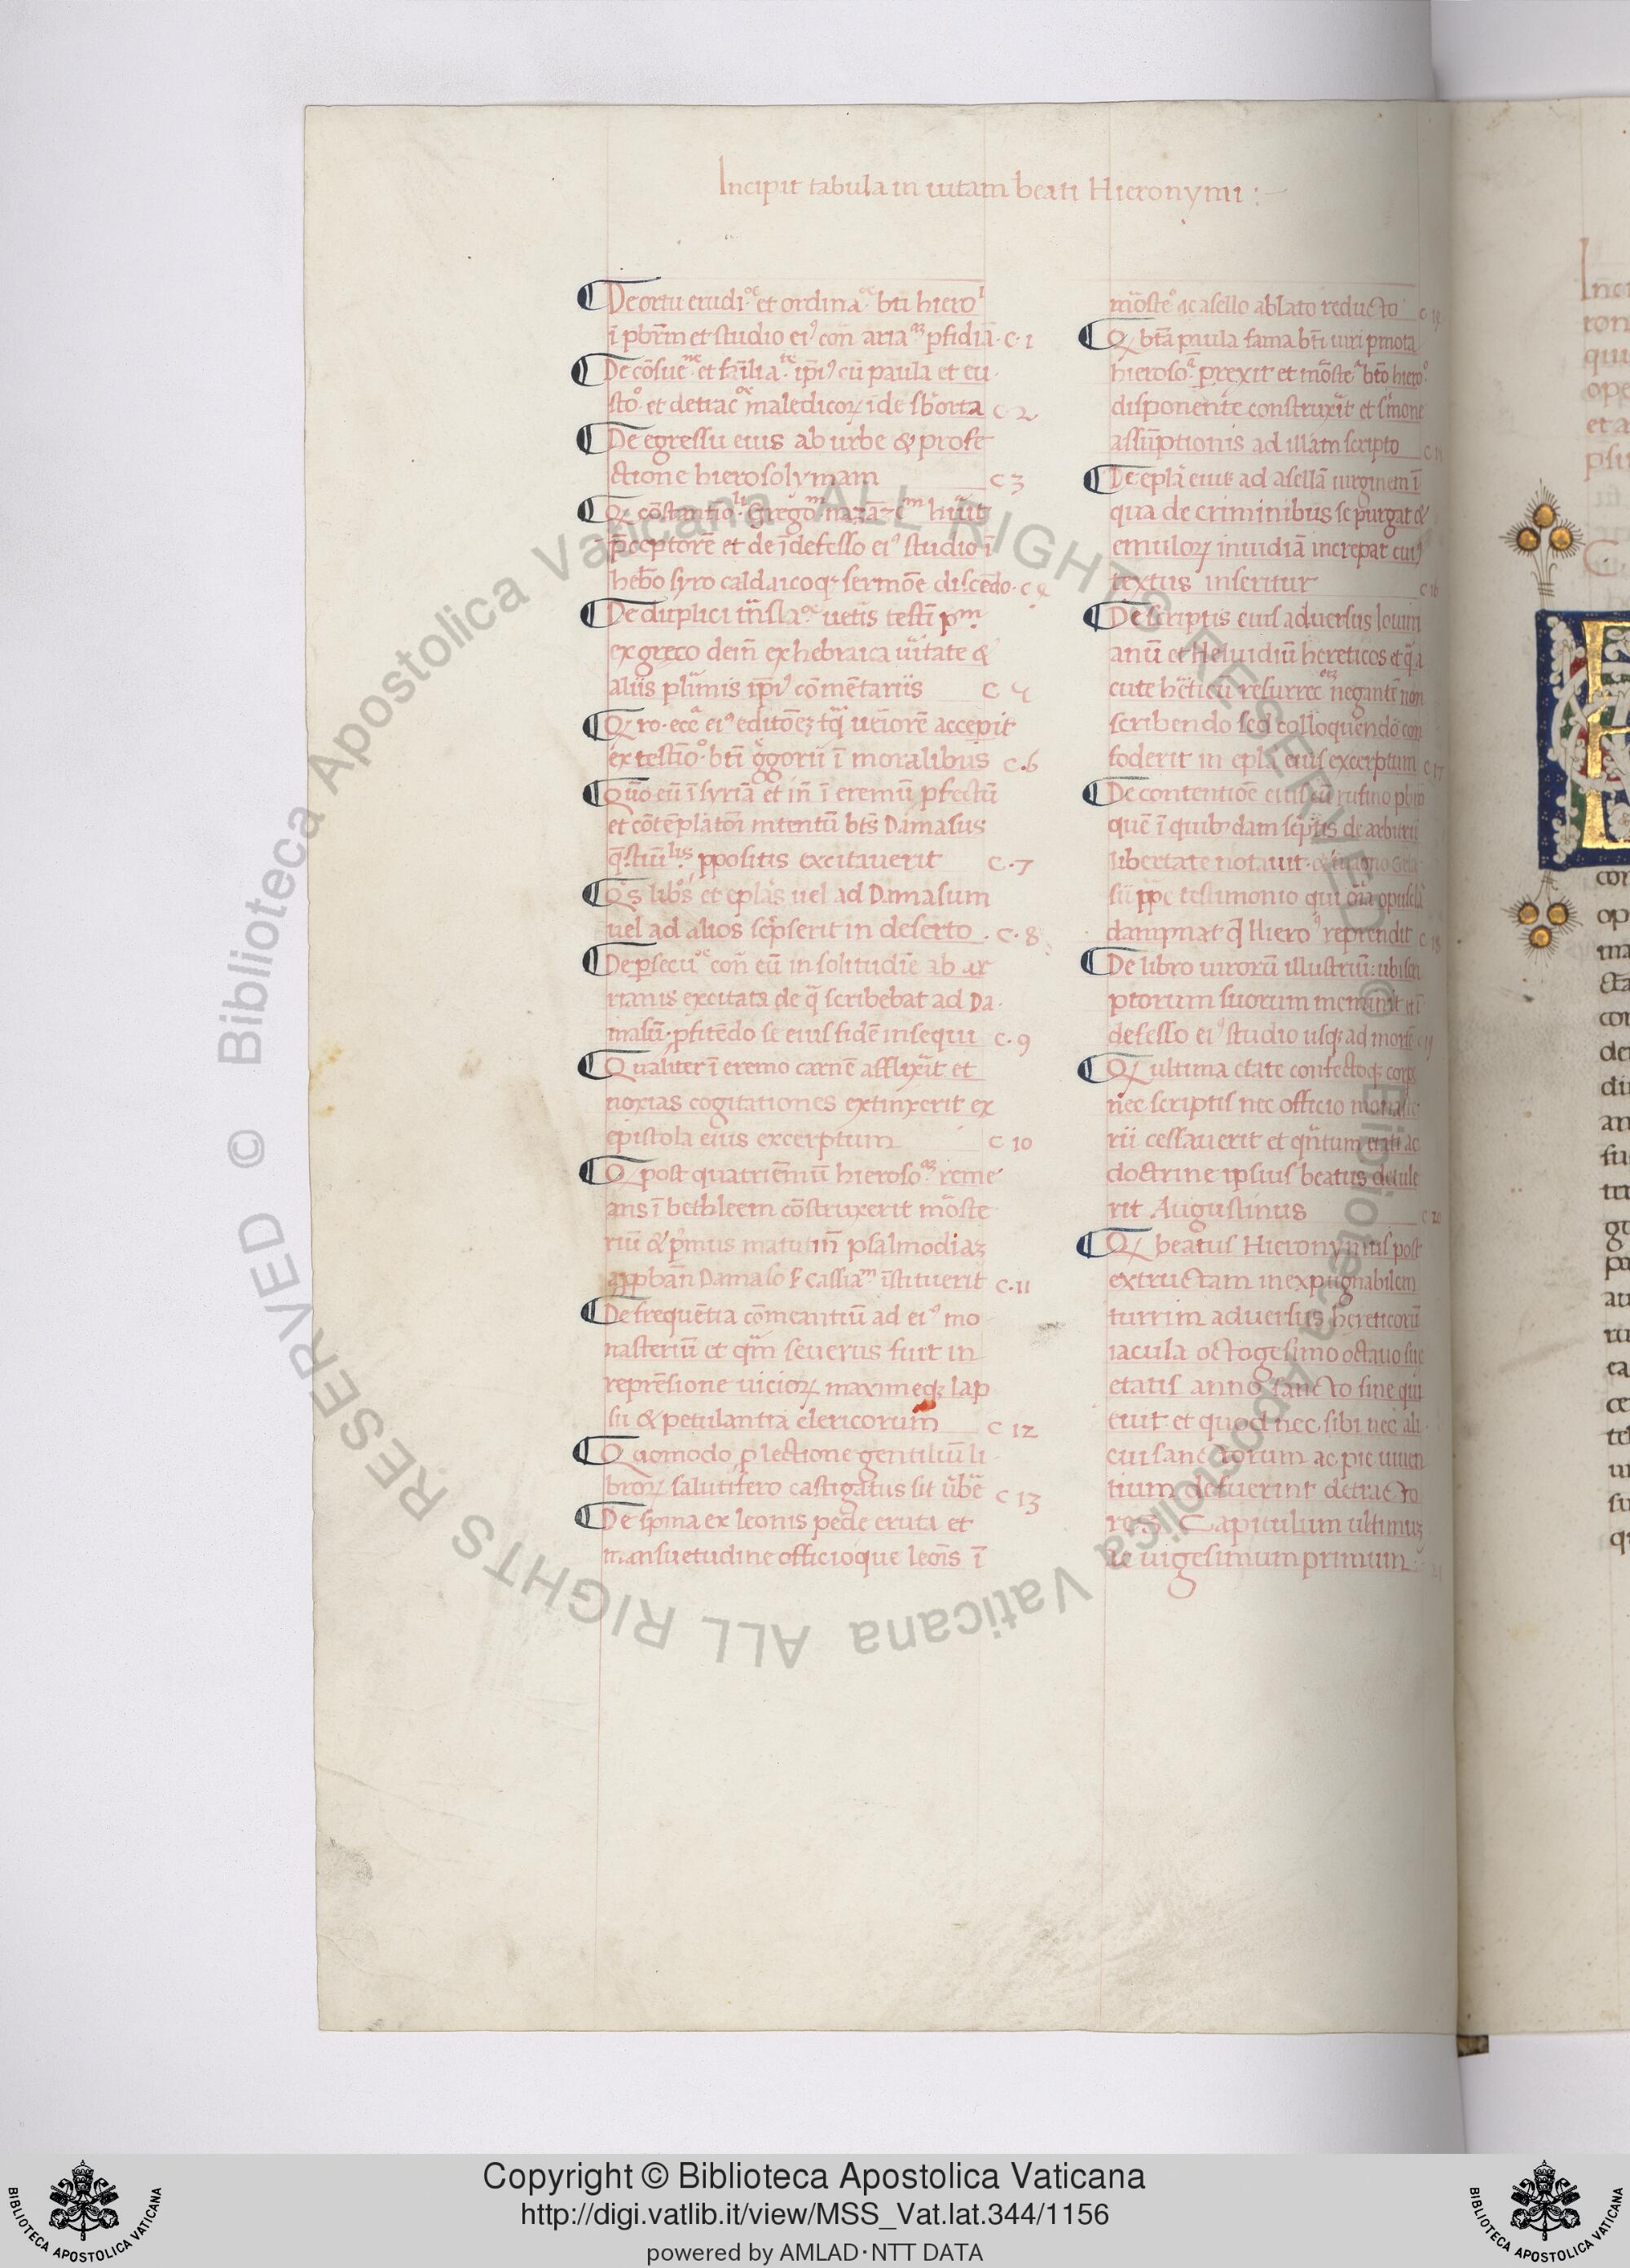 Incipit tabula in uitam beati Hieronymi :~
De ortu erudi.oē et ordina.oē bti hiero.i
ī pbrm et studio eiꝰ con aria.aꝫ pfidiā. c. 1
De cōsue.ne et fāilia.te ipiꝰ cū paula et eu
sto. et detrac.oē maledicoꝝ īde sborta c 2
De egressu eius ab urbe & profe
ctione hierosolymam c 3
Q cōstantio.li Grego.m nazā-c.m huit
pceptorē et de īdefesso eiꝰ studio ī
hebo syro caldaicoqꝫ sermōe discēdo. c
De duplici trnsla.oē uetis testi pm.
ex greco dein ex hebraica uītate &
aliis plimis ipiꝰ cōmētariis c
Q ro. ecc.a eiꝰ editōeꝫ tq uerioē accepit
ex testīo. bti ggorii ī moralibus c. 6
Quo eū ī syriā et in ī eremū pfectū
et cōtēplatōi intentū bts Damasus
q̄stiū.lis ppositis excitauerit c. 7
Qs libos et eplas uel ad Damasum
uel ad alios scpserit in deserto. c. 8
De psecu.oē con eū in solitudīe ab ar
rianis excitata de q̄ scribebat ad Da
masū. pfitēdo se eius fidē insequi c. 9
Qualiter ī eremo carnē afflixit et
noxias cogitationes extinxerit ex
epistola eius excerptum c 10
Q post quatriēniū hieroso.aꝫ reme
ans ī bethleem cōstruxerit mōste
riū & pmus matutin psalmodiaꝫ
appban Damaso & cassia.m īstituerit c. 11
De frequētia cōmeantiū ad eiꝰ mo
nasteriū et qm seuerus fuit in
reprēsione uicioꝝ maximeqꝫ lap
su & petulantia clericorum c 12
Quomodo p lectione gentiliū li
broꝝ salutifero castigatus sit ube c 13
De spina ex leonis pede eruta et
mansuetudine officioque leois ī
mōste.o ac asello ablato reducto c
Q bta paula fama bti uiri pmota
hieroso.a prexit et mōste.a bto hiero.o
disponente construxit et smone
assūptionis ad illam scripto c
De epla eius ad asellā uirginem ī
qua de criminibus se purgat &
emuloꝝ inuidiā increpat cuiꝰ
textus inseritur c 16
De scriptis eius aduersus Iouin
anū et Heluidiū hereticos et q̄
cute hēticū resurrec.oeꝫ negantē non
scribendo sed colloquendo con
foderit in epla eius excerptum c 17
De contentiōe eius cū rufino pbro
quē ī quibꝰdam scptis de arbitrii
libertate notauit. & magno Gela
sii ppe testimonio qui oīa opuscla
dampnat q̄ Hiero.9 reprendit c 18
De libro uirorū illustriū: ubi scri
ptorum suorum meminit et ī
defesso eiꝰ studio usqꝫ ad mortē c
Q ultima etate confectoqꝫ corpe
nec scriptis nec officio monaste
rii cessauerit et qntum etati ac
doctrine ipsius beatus detule
rit Augustinus c 20
Q beatus Hieronymus post
extructam inexpugnabilem
turrim aduersus hereticorū
iacula octogesimo octauo sue
etatis anno sancto fine qui
euit et quod nec sibi nec ali
cui sanctorum ac pie uiuen
tium defuerint detracto
res. Capitulum ultimuꝫ
ac uigesimum primum
Copyright © Biblioteca Apostolica Vaticana
http://digi.vatlib.it/view/MSS_Vat.lat.344/1156
powered by AMLAD·NTT DATA
BIBLIOTECA APOSTOLICA VATICANA
BIBLIOTECA APOSTOLICA VATICANA
© Biblioteca Apostolica Vaticana ALL RIGHTS RESERVED © Biblioteca Apostolica Vaticana ALL RIGHTS RESERVED